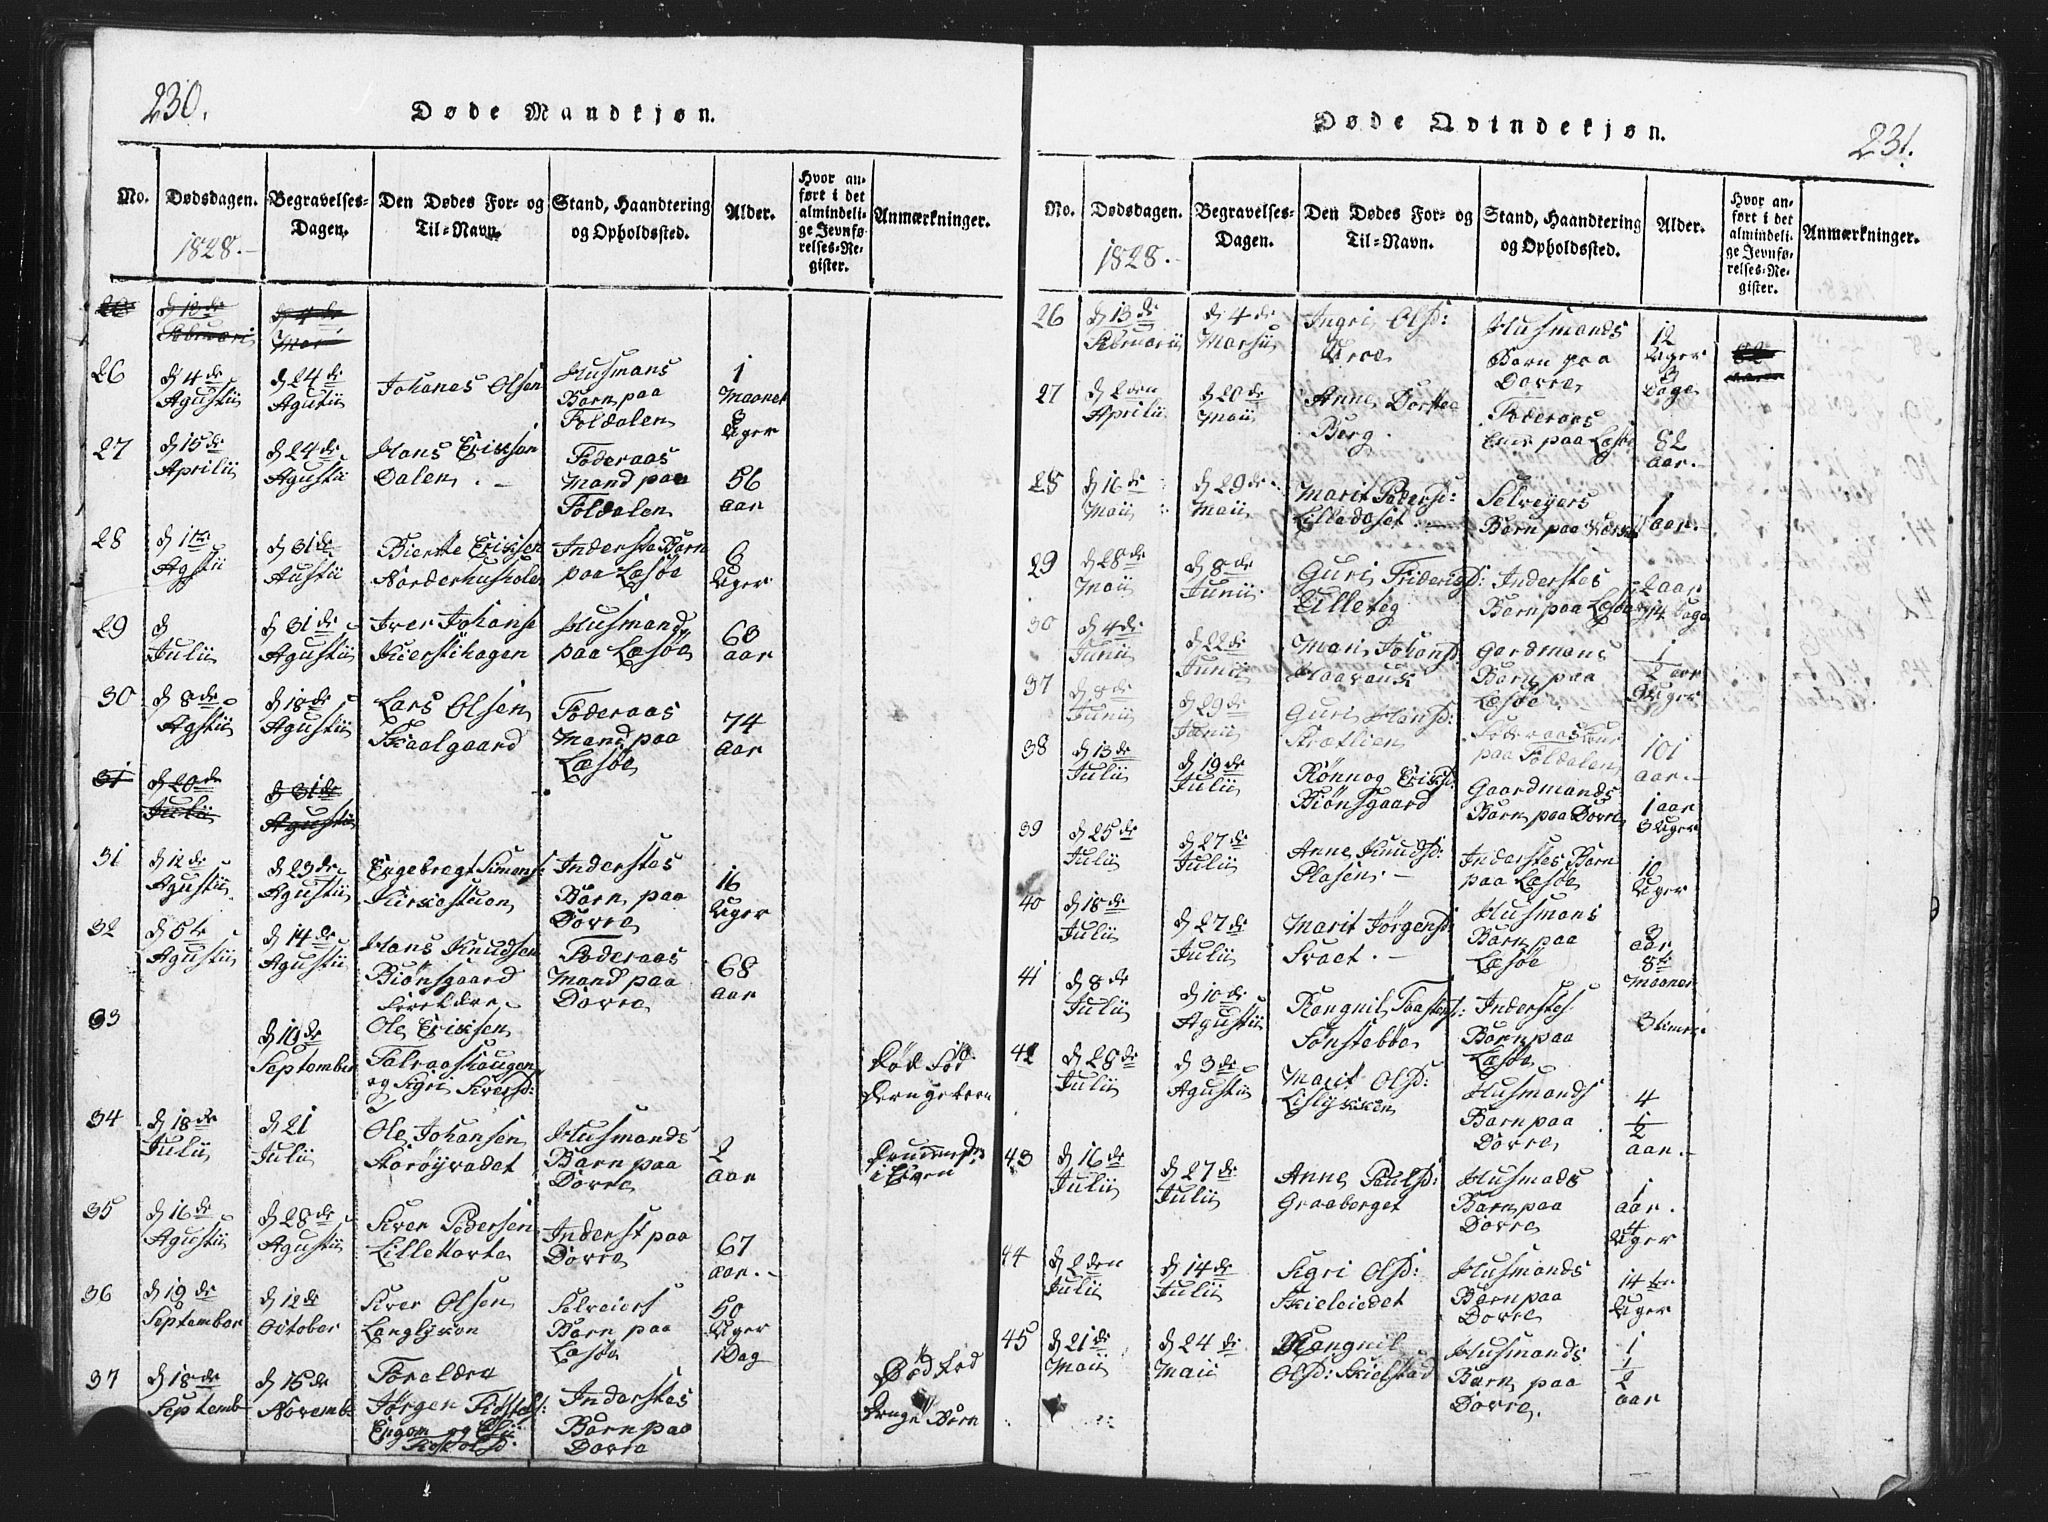 230.
Døde Mandkjøn.
No.
Dødsdagen.
Begravelses-
Dagen.
Den Dødes For- og
Til-Navn.
Stand, Haandtering
og Opholdssted.
Alder.
Hvor an-
ført i det
almindeli-
ge Jevnfø-
relses-Re-
gister.
Anmærkninger.
1828.
26
d 4de
Agustii
d 24de
Agutii
Johanes Olsen
Husmans
Barn paa
Foldalen
1
Maanet
3
Uger
27
d 15de
Aprilii
d 24de
Agustii
Hans Erixsen
Dalen
Føderaas
Mand paa
Foldalen
56
aar
28
d 1te
Agstii
d 31de
Austii
Biertte Erixsen
Inderste Barn
paa Læsøe
6
Uger
29
d
Julii
d 31de
Agustii
Iver Johanse
Kierstihagen
Husmand
paa Læsøe
63
aar
30
d 8de
Agstii
d 18de
Agustii
Lars Olsen
Skaalgaard
Føderaas
Mand paa
Læsøe
74
aar
31
d 20de
Julii
d 31de
Agustii
31
d 12de
Agustii
d 23de
Agustii
Engebregt Simens:
Kirkestuen
Inderstes
Barn paa
Dovre
16
Uger
32
d 5te
Agustii
d 14de
Agustii
Hans Knudsen
Biønsgaard
Føderaas
Mand paa
Dovre
68
aar
33
d 19de
September
Ole Erixsen
og Sigri Siversd:
Død Fød
34
d 18de
Julii
d 21
Julii
Ole Johansen
Husmands
Barn paa
Dovre
2
aar
35
d 16de
Agustii
d 28de
Agustii
Siver Pedersen
Inderst paa
Dovre
67
aar.
36
d 19de
September
d 12de
October
Siver Olsen
Selveiers
Barn paa
Læsøe
50
Uger
1 Dag
37
d 18de
Septemb
d 15de
Novembe
Foreldre
Jørgen
Inderstes
Barn paa
Dovre
Død Fød
Drenge Barn
231.
Døde Qvindekjøn.
No.
Dødsdagen.
Begravelses-
Dagen.
Den Dødes For- og
Til-Navn.
Stand, Haandtering
og Opholdssted.
Alder.
Hvor an-
ført i det
almindeli-
ge Jevnfø-
relses-Re-
gister.
Anmærkninger.
1828.
26
d 13de
Februarii
d 4de
Marsii
Ingri Olsd:
Husmands
Barn paa
Dovre
12
Uger
3
Dage
27
d 2den
Aprilii
d 20de
Maii
Anne Dortea
Berg
Føderaas
paa Læsøe
82
aar.
28
d 16de
Maii
d 29de
Maii
Marit Pedersd:
Selveyers
Barn paa
1
aar.
29
d 28de
Maii
d 8de
Junii
Guri Friderigsd:
Lilleteg
Inderstes
Barn paa Læsøe
2 aar
14 Dage
30
d 4de
Junii
d 22de
Junii
Mari Johansd:
Gardmans
Barn paa
Læsøe
1
2 aar
Uger
37
d 8de
Junii
d 29de
Junii
Guri Hansd:
Strætlien
paa Foldalen
101
aar.
38
d 13de
Julii
d 19de
Julii
Rønnog Erixsd:
Biønsgaard
Gaardmands
Barn paa Dovre
1 aar
3 Uger
39
d 25de
Julii
d 27de
Julii
Anne Knudsd:
Plasen
Inderstes Barn
paa Læsøe
Uger
40
d 18de
Julii
d 27de
Julii
Marit Jørgensd:
Svaet
Husmans
Barn paa
Læsøe
3
aar
8te
Maaner
41
d 8de
Julii
d 10de
Agustii
Sønstebøe
Inderstes
Barn paa
Læsøe
42
d 28de
Julii
d 3de
Agustii
Marit Olsd:
Husmands
Barn paa
Dovre
4
1
2
aar.
43
d 16de
Julii
d 27de
Julii
Anne Paulsd:
Graaberget
Husmads
Barn paa
Dovre
1
aar.
4
Uger
44
d 2den
Julii
d 14de
Julii
Sigri Olsd:
Husmands
Barn paa
Dovre
14ten
Uger
45
d 21de
Maii
d 24de
Maii
Rangnil
Olsd: Skielstad
Husmands
Barn paa
Dovre.
1
1
2
aar